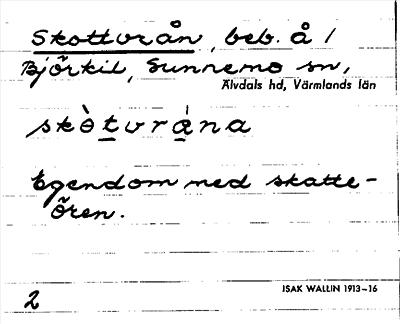 Skottvrån, beb. å /
Björkil, Sunnemo sn,
Älvdals hd, Värmlands län
skòtvrå̀na
Egendom med skatte-
ören.
ISAK WALLIN 1913–16
2